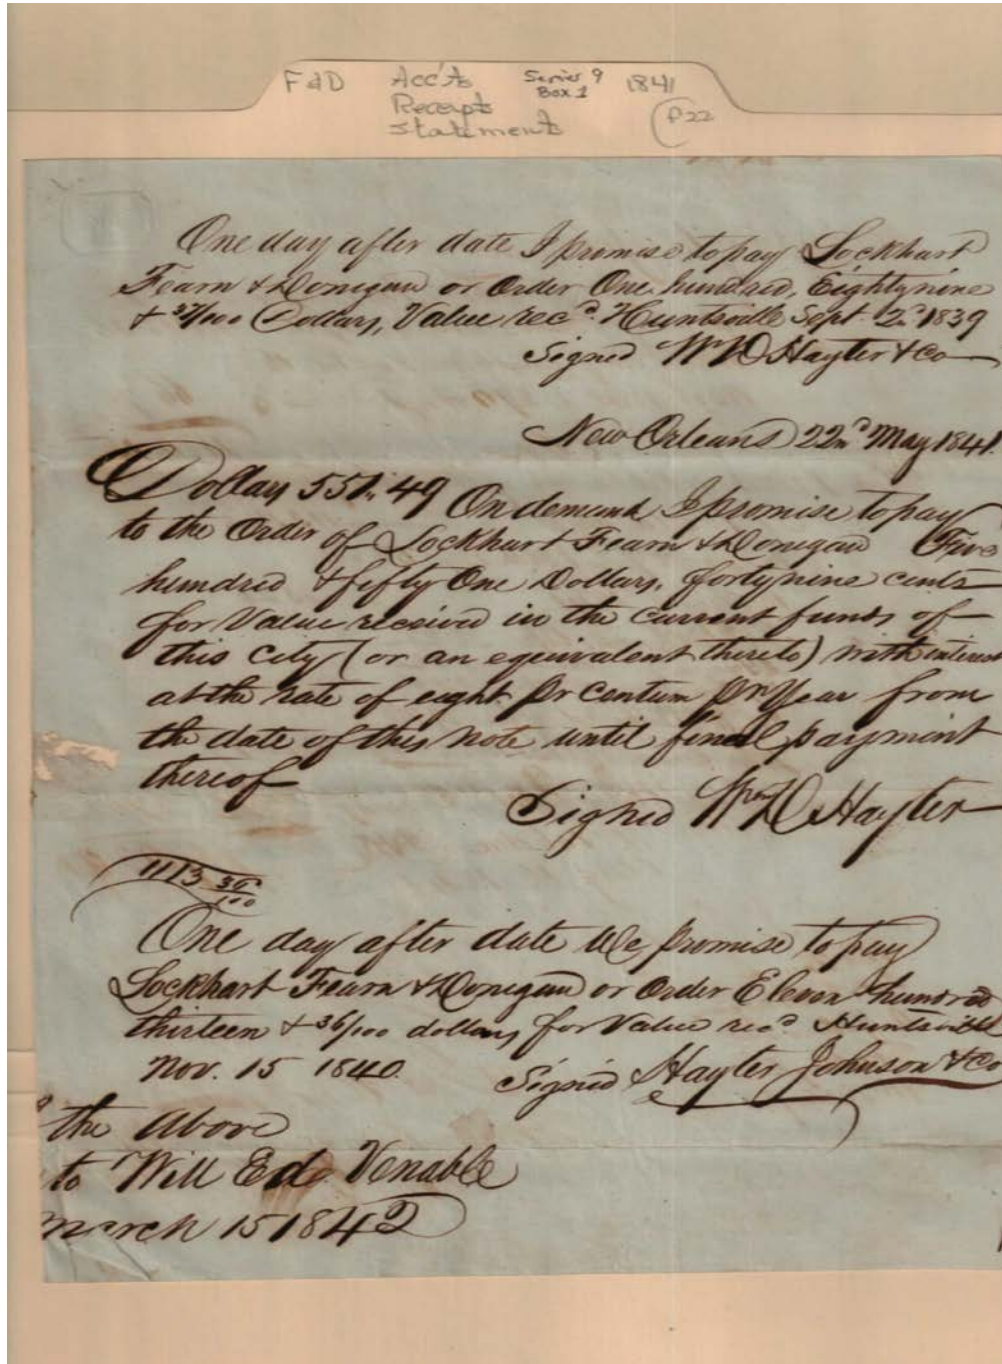 F&D Acc'ts Series 9 1841
Box 1
Receipts P22
Statements
One day after date I promise to pay Lockhart
Fearn & Donegan or Order One hundred, Eighty nine
& 37/100 Dollars, Value recd. Huntsville Sept. 2d 1839
Signed Wm D Hayter & Co
New Orleans 22nd May 1841.
Dollars 551. 49 On demand I promise to pay
to the Order of Lockhart Fearn & Donegan Five
hundred & fifty One Dollars, forty nine cents
for Value received in the current funds of
this city (or an equivalent thereto) with interest
at the rate of eight Pr Centum Pr Year from
the date of this note until final payment
thereof
Signed Wm D Hayter
1113 36/100
One day after date We promise to pay
Lockhart Fearn & Donegan or Order Eleven hundred
thirteen & 36/100 dollars, for Value recd Huntsville
Nov. 15 1840. Signed Hayter Johnson & Co
the Above
to Will Ed. Venable
March 15 1842